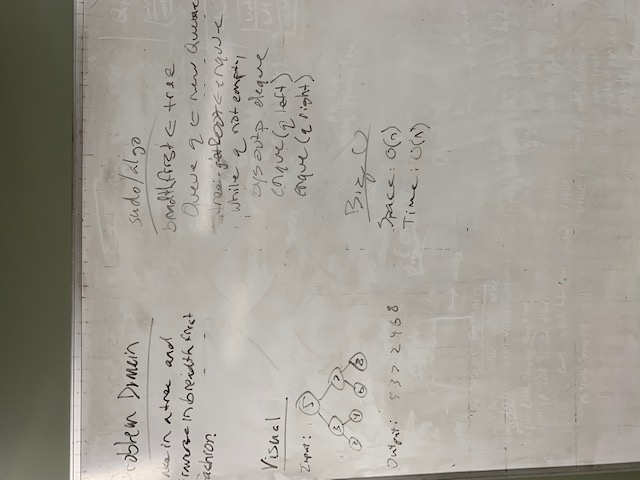 Problem Domain
take in a tree and
traverse in breadth first
fashion.
Visual
Input:
5
3 7
2 4 6 8
Output: 5 3 7 2 4 6 8
sudo/algo
breadthfirst ← tree
Queue q ← new Queue
tree.getRoot ← enqueue
while q not empty
sys outp deque
enque(q left)
enque(q right)
Big O
Space: O(n)
Time: O(n)